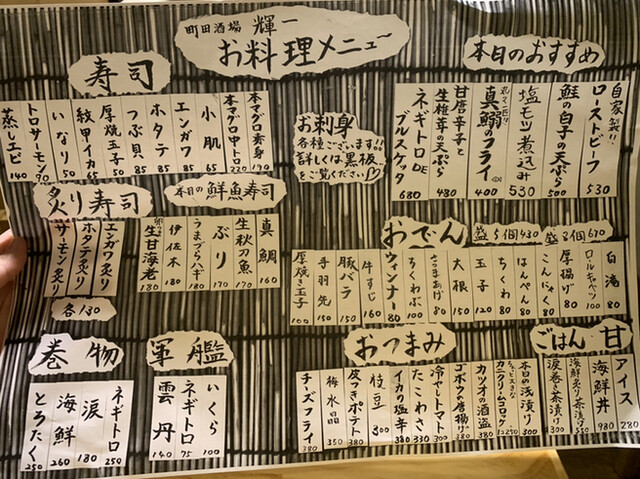 町田酒場 輝一
お料理メニュー
寿司
本マグロ赤身 170
本マグロ中トロ 220
小肌 65
エンガワ 85
ホタテ 85
つぶ貝 85
厚焼玉子 50
紋甲イカ 65
いなり 50
トロサーモン 90
蒸しエビ 140
お刺身
各種ございます!!
詳しくは黒板
をご覧ください
本日のおすすめ
自家製!!
ローストビーフ 530
鮭の白子の天ぷら 500
塩モツ煮込み 530
真鯵のフライ 400
甘唐辛子と
生椎茸の天ぷら 480
ネギトロDE
ブルスケッタ 680
炙り寿司
エンガワ炙り
ホタテ炙り
サーモン炙り
各130
本日の鮮魚寿司
真鯛 160
生秋刀魚 170
ぶり 170
うまづらハギ 180
伊佐木 180
生甘海老 130
おでん 盛5個430 盛8個630
白滝 80
ロールキャベツ 100
厚揚げ 80
こんにゃく 80
はんぺん 80
ちくわ 80
玉子 120
大根 150
さつまあげ 80
ちくわぶ 100
ウィンナー 80
牛すじ 160
豚バラ 150
手羽先 150
厚焼き玉子 100
巻物
ネギトロ 250
涙 180
海鮮 260
とろたく 250
軍艦
いくら 100
ネギトロ 75
雲丹 140
おつまみ
本日の浅漬け 300
カツオの酒盗 380
ゴボウの唐揚げ 380
冷やしトマト 300
たこわさ 330
イカの塩辛 380
枝豆 300
皮つきポテト 380
梅水晶 350
チーズフライ 380
ごはん
海鮮丼 980
海鮮炙り茶漬け 550
涙巻き茶漬け 300
甘
アイス 280